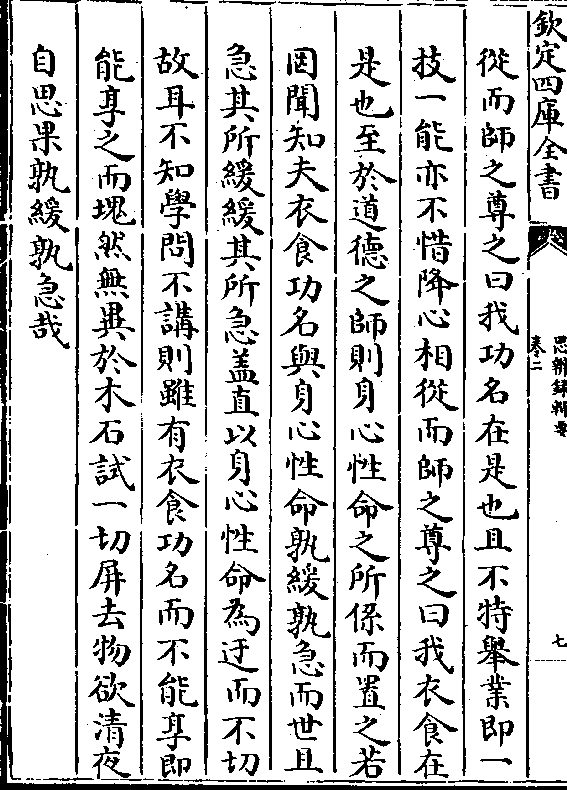 欽定四庫全書
思辨錄輯要
卷二
七
從而師之尊之曰我功名在是也且不特舉業即一
技一能亦不惜降心相從而師之尊之曰我衣食在
是也至於道德之師則身心性命之所係而置之若
罔聞知夫衣食功名與身心性命孰緩孰急而世且
急其所緩緩其所急蓋直以身心性命為迂而不切
故耳不知學問不講則雖有衣食功名而不能享即
能享之而塊然無異於木石試一切屏去物欲清夜
自思果孰緩孰急哉